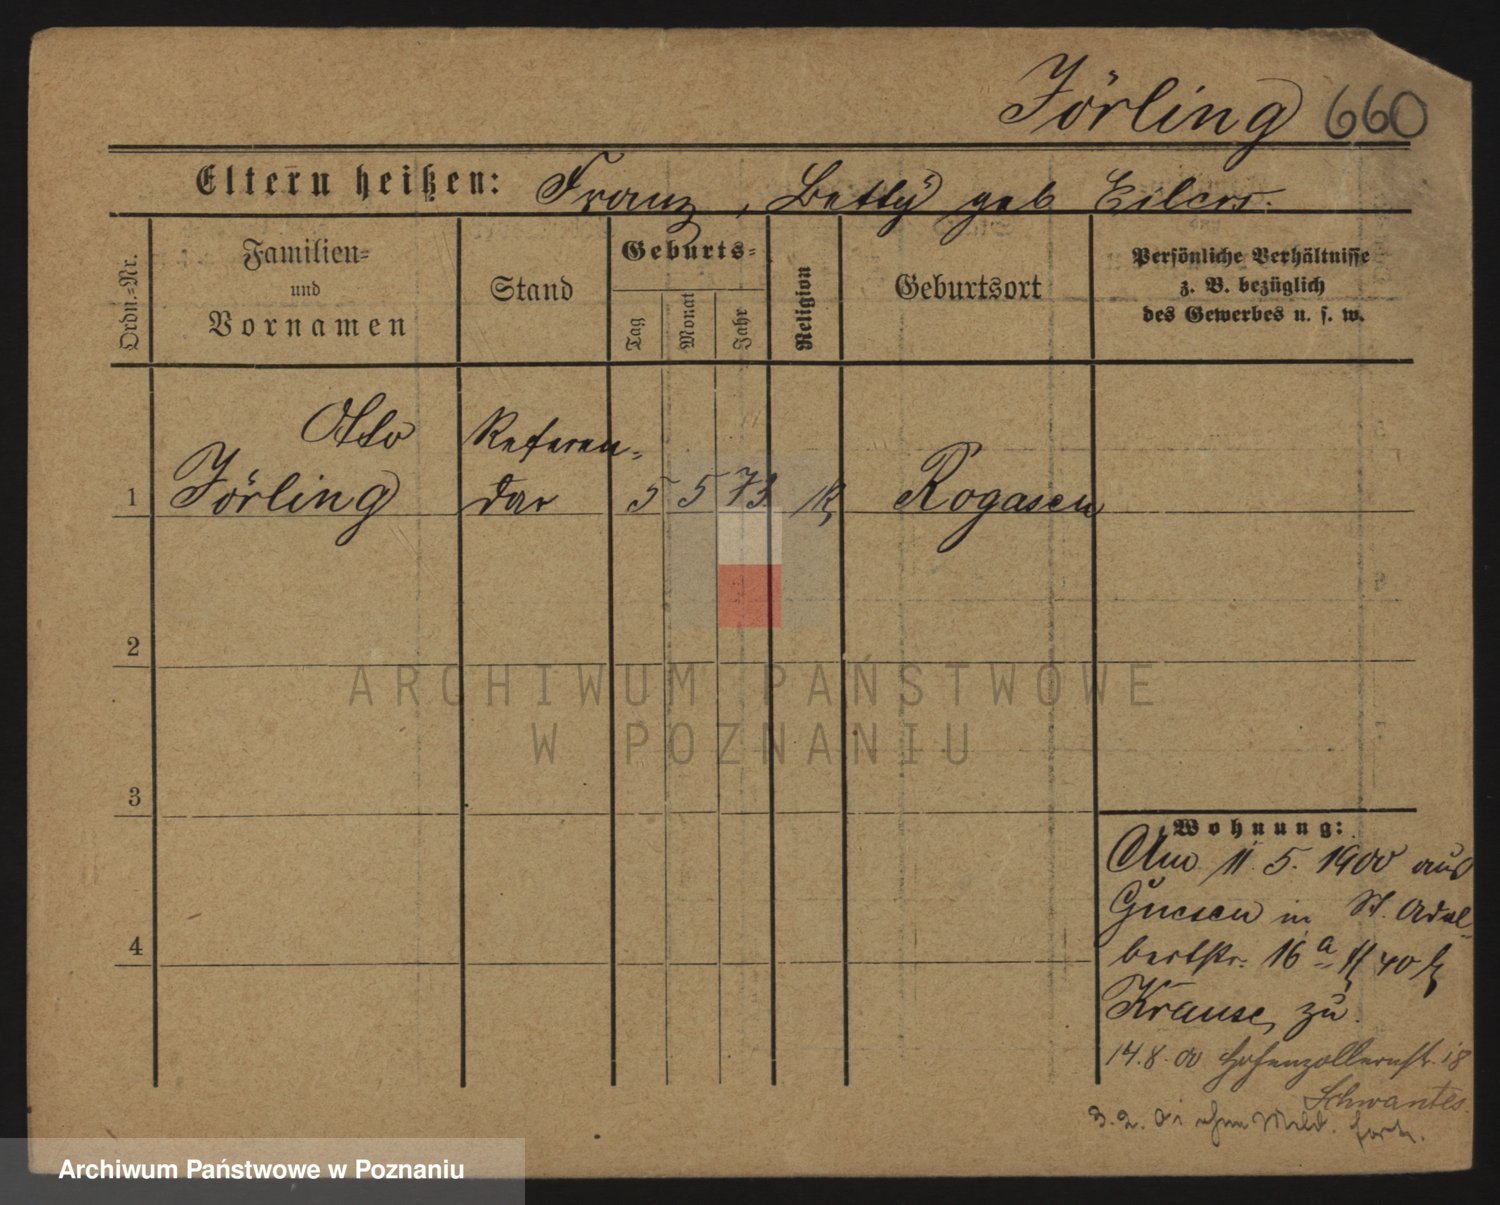 Jörling 660
Eltern heißen: Franz, Betty geb Eilers.
Ordn.-Nr.
Familien- und Vornamen
Stand
Geburts-
Tag
Monat
Jahr
Religion
Geburtsort
Persönliche Verhältnisse
z. B. bezüglich
des Gewerbes u. s. w.
Otto Referen-
1 Jörling dar 5 5 73 k Rogasen
2
3
4
Wohnung:
Am 11. 5. 1900 aus
Gnesen in St. Adal-
bertstr. 16 a II
Krause, zu.
14.8.00 Hohenzollernstr. 18
Schwantes.
3.2.01 ohne Meld. fort.
ARCHIWUM PAŃSTWOWE
W POZNANIU
Archiwum Państwowe w Poznaniu